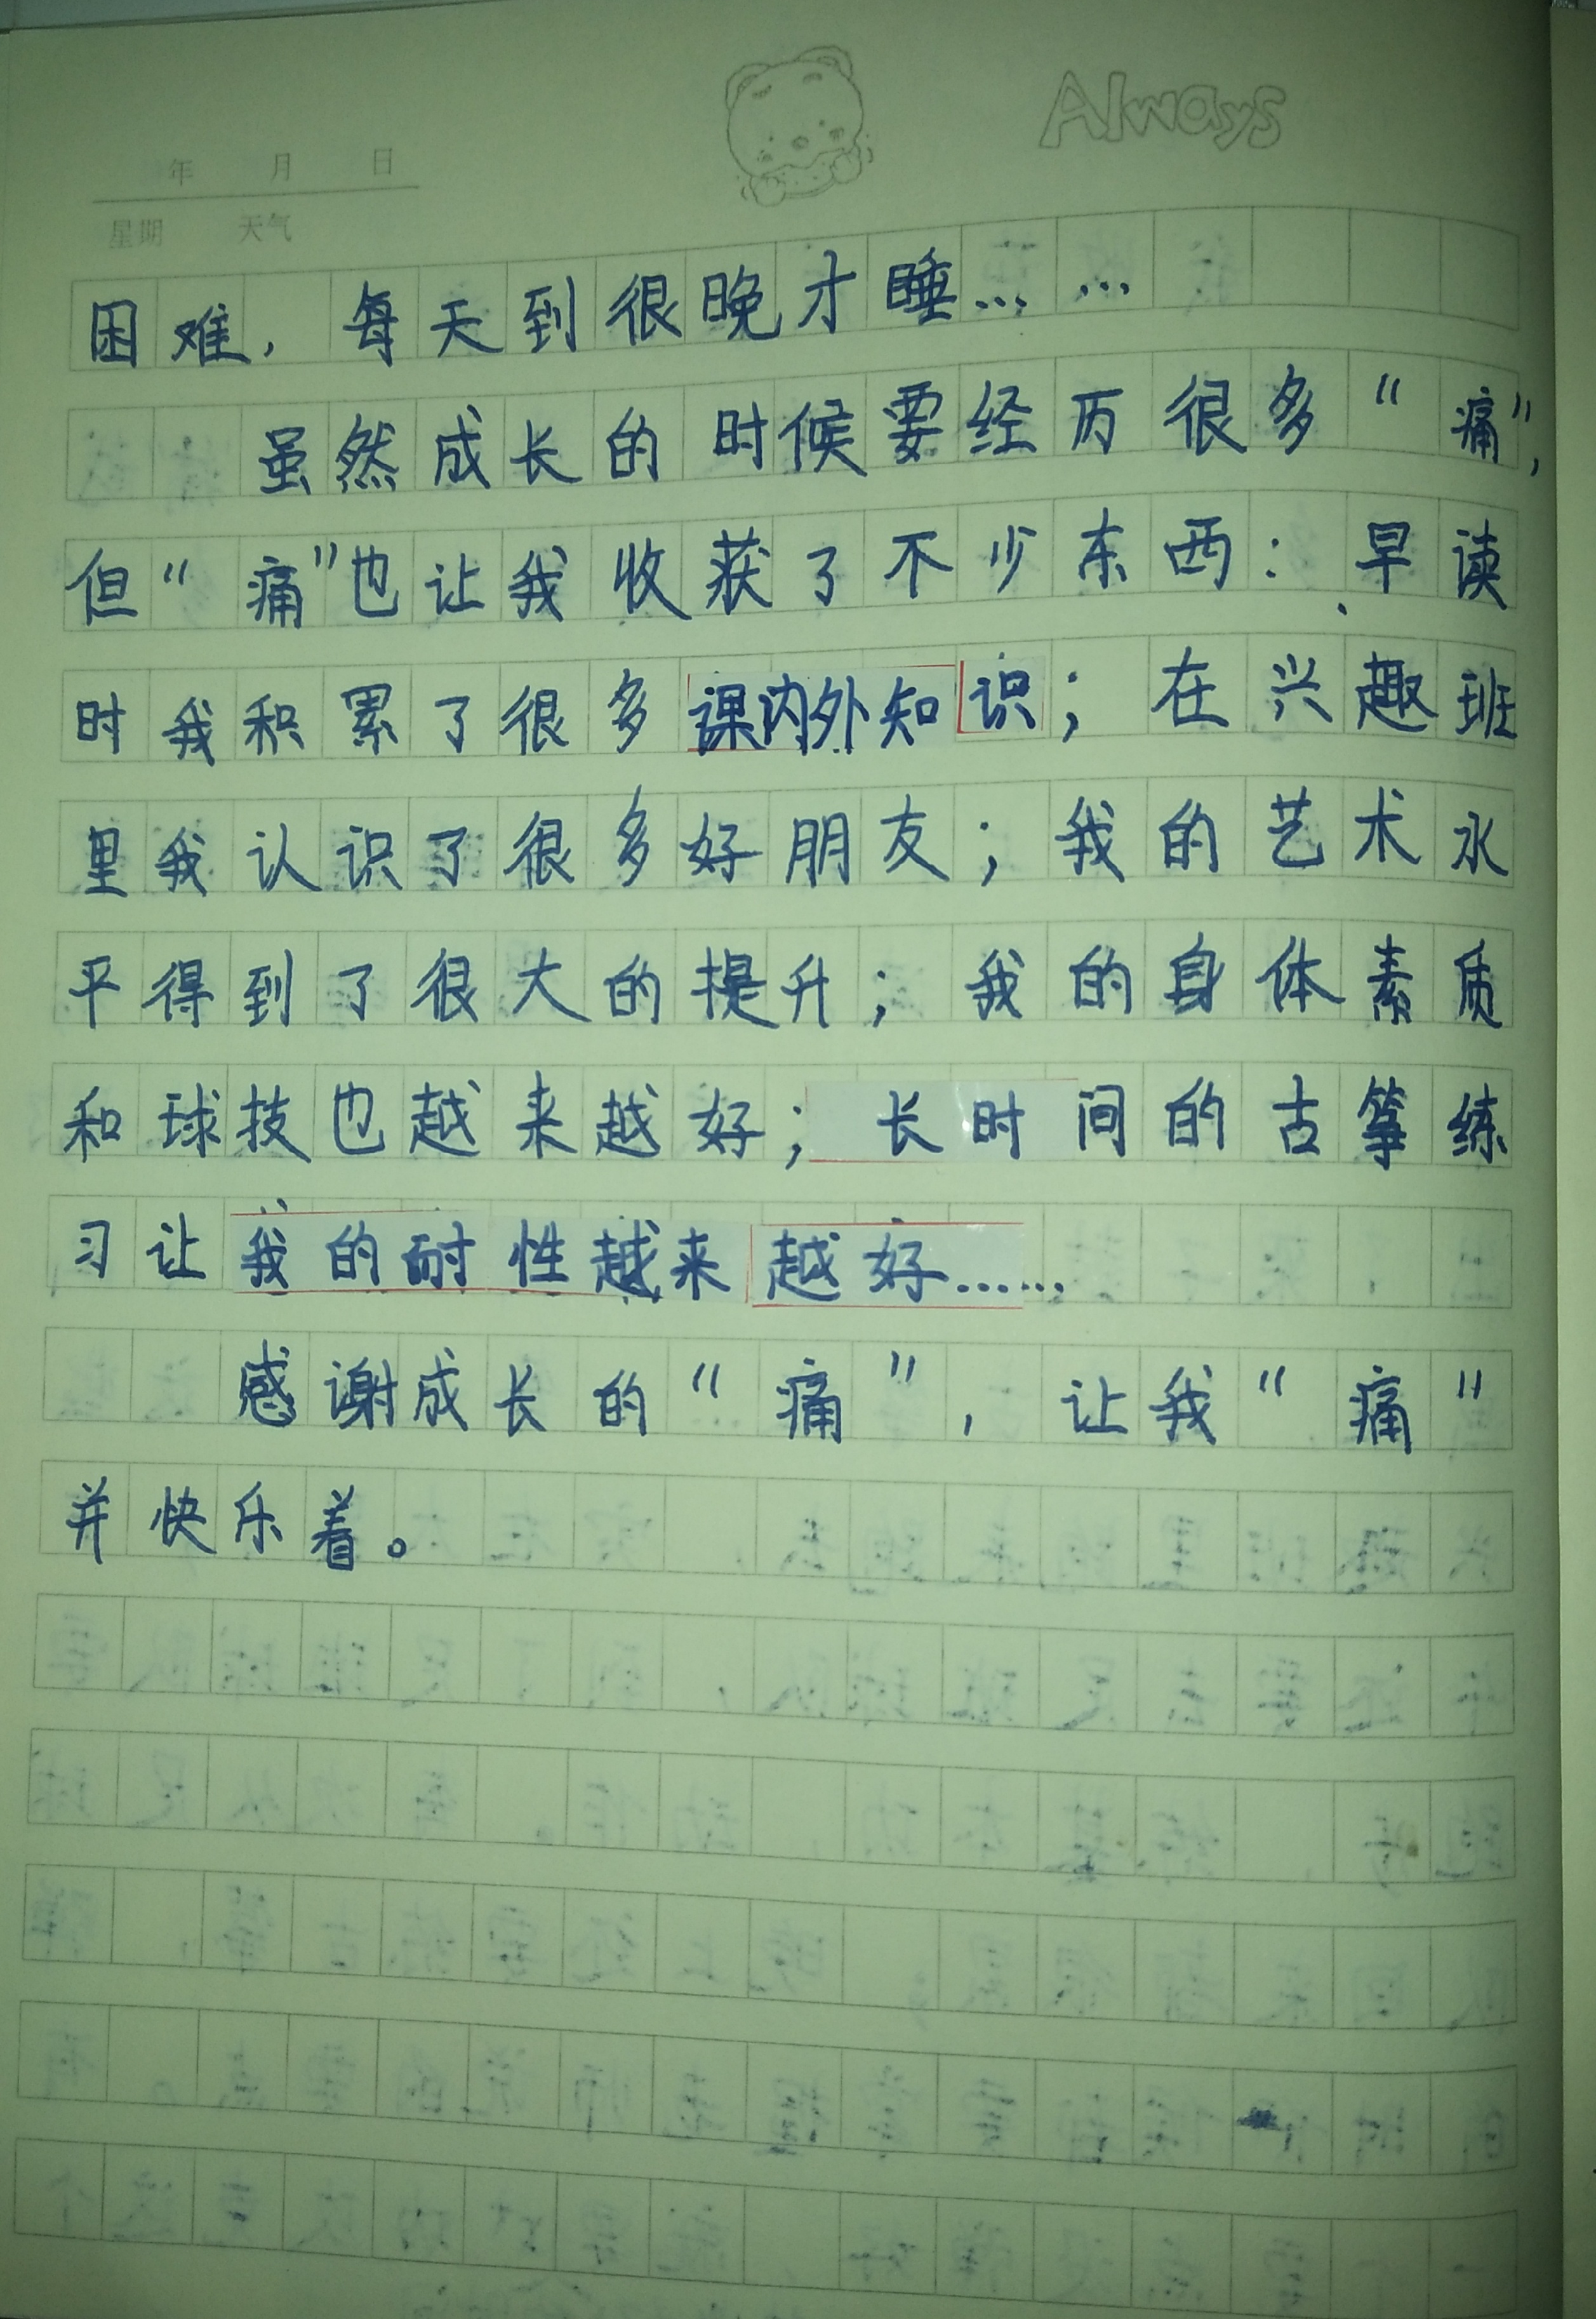 Always
年 月 日
星期 天气
困难，每天到很晚才睡……
虽然成长的时候要经历很多“痛”，
但“痛”也让我收获了不少东西：早读
时我积累了很多课内外知识；在兴趣班
里我认识了很多好朋友；我的艺术水
平得到了很大的提升；我的身体素质
和球技也越来越好；长时间的古筝练
习让我的耐性越来越好……
感谢成长的“痛”，让我“痛”
并快乐着。